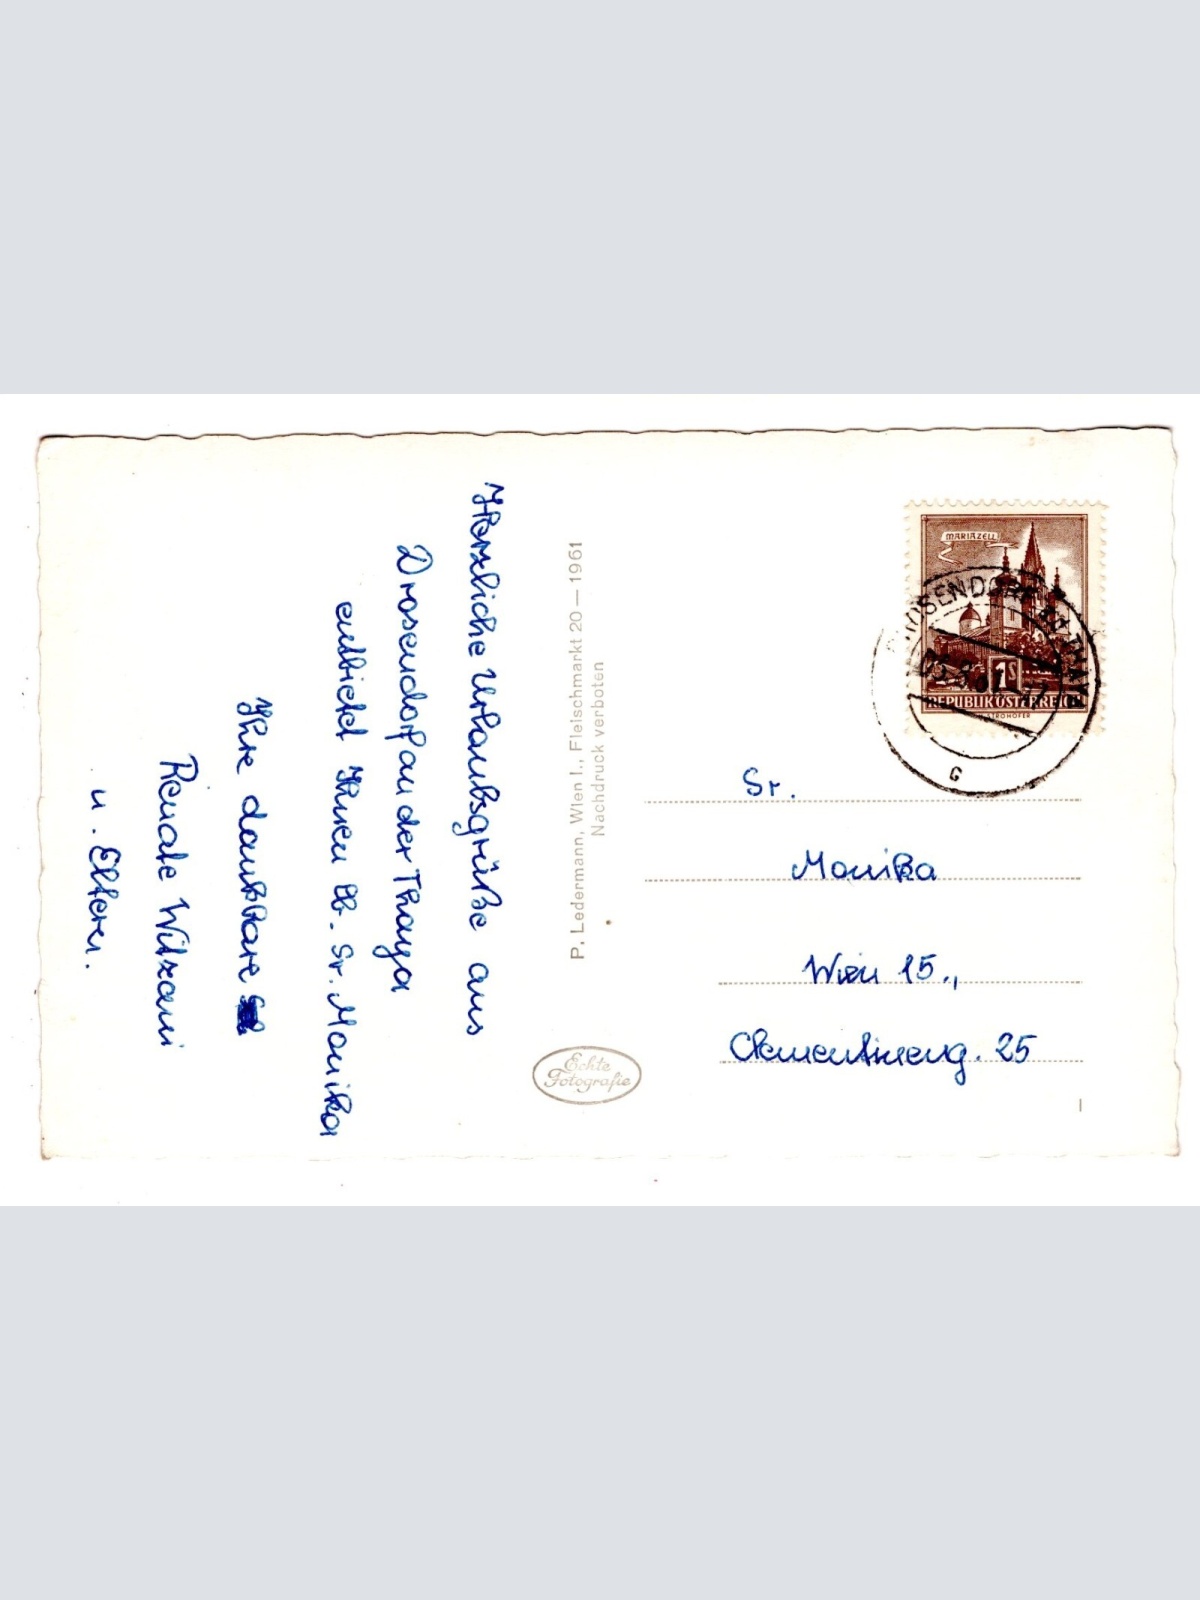 Herzliche Urlaubsgrüße aus
Drosendorf an der Thaya
entbietet Ihnen lb. Sr. Monika
Ihre dankbare
Renate Witzani
u. Eltern.
P. Ledermann, Wien I., Fleischmarkt 20 — 1961
Nachdruck verboten
Echte
Fotografie
MARIAZELL
1S
REPUBLIK ÖSTERREICH
STROHOFER
G
Sr.
Monika
Wien 15.,
Clementineng. 25